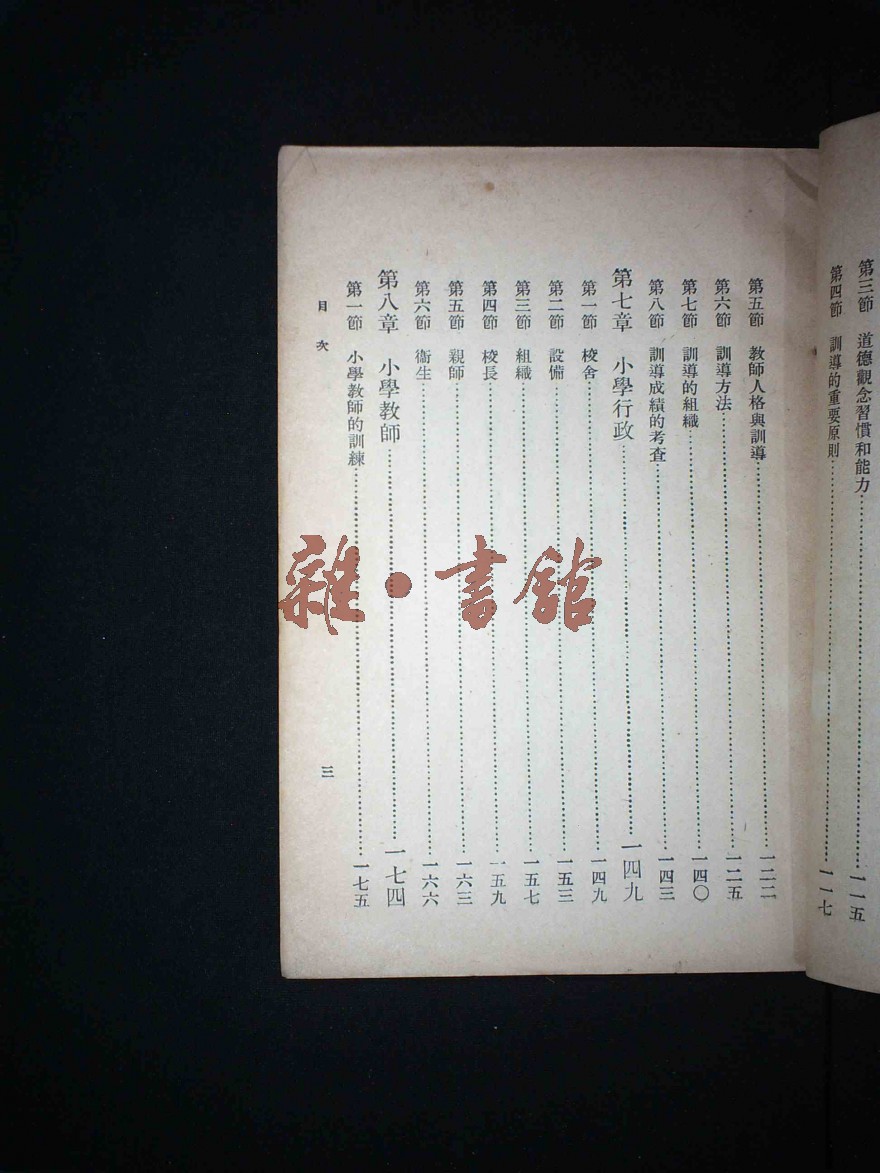 第三節　道德觀念習慣和能力……一一五
第四節　訓導的重要原則……一一七
第五節　教師人格與訓導……一二二
第六節　訓導方法……一二五
第七節　訓導的組織……一四〇
第八節　訓導成績的考查……一四三
第七章　小學行政……一四九
第一節　校舍……一四九
第二節　設備……一五三
第三節　組織……一五七
第四節　校長……一五九
第五節　親師……一六三
第六節　衞生……一六六
第八章　小學教師……一七四
第一節　小學教師的訓練……一七五
目次
三
雜·書館